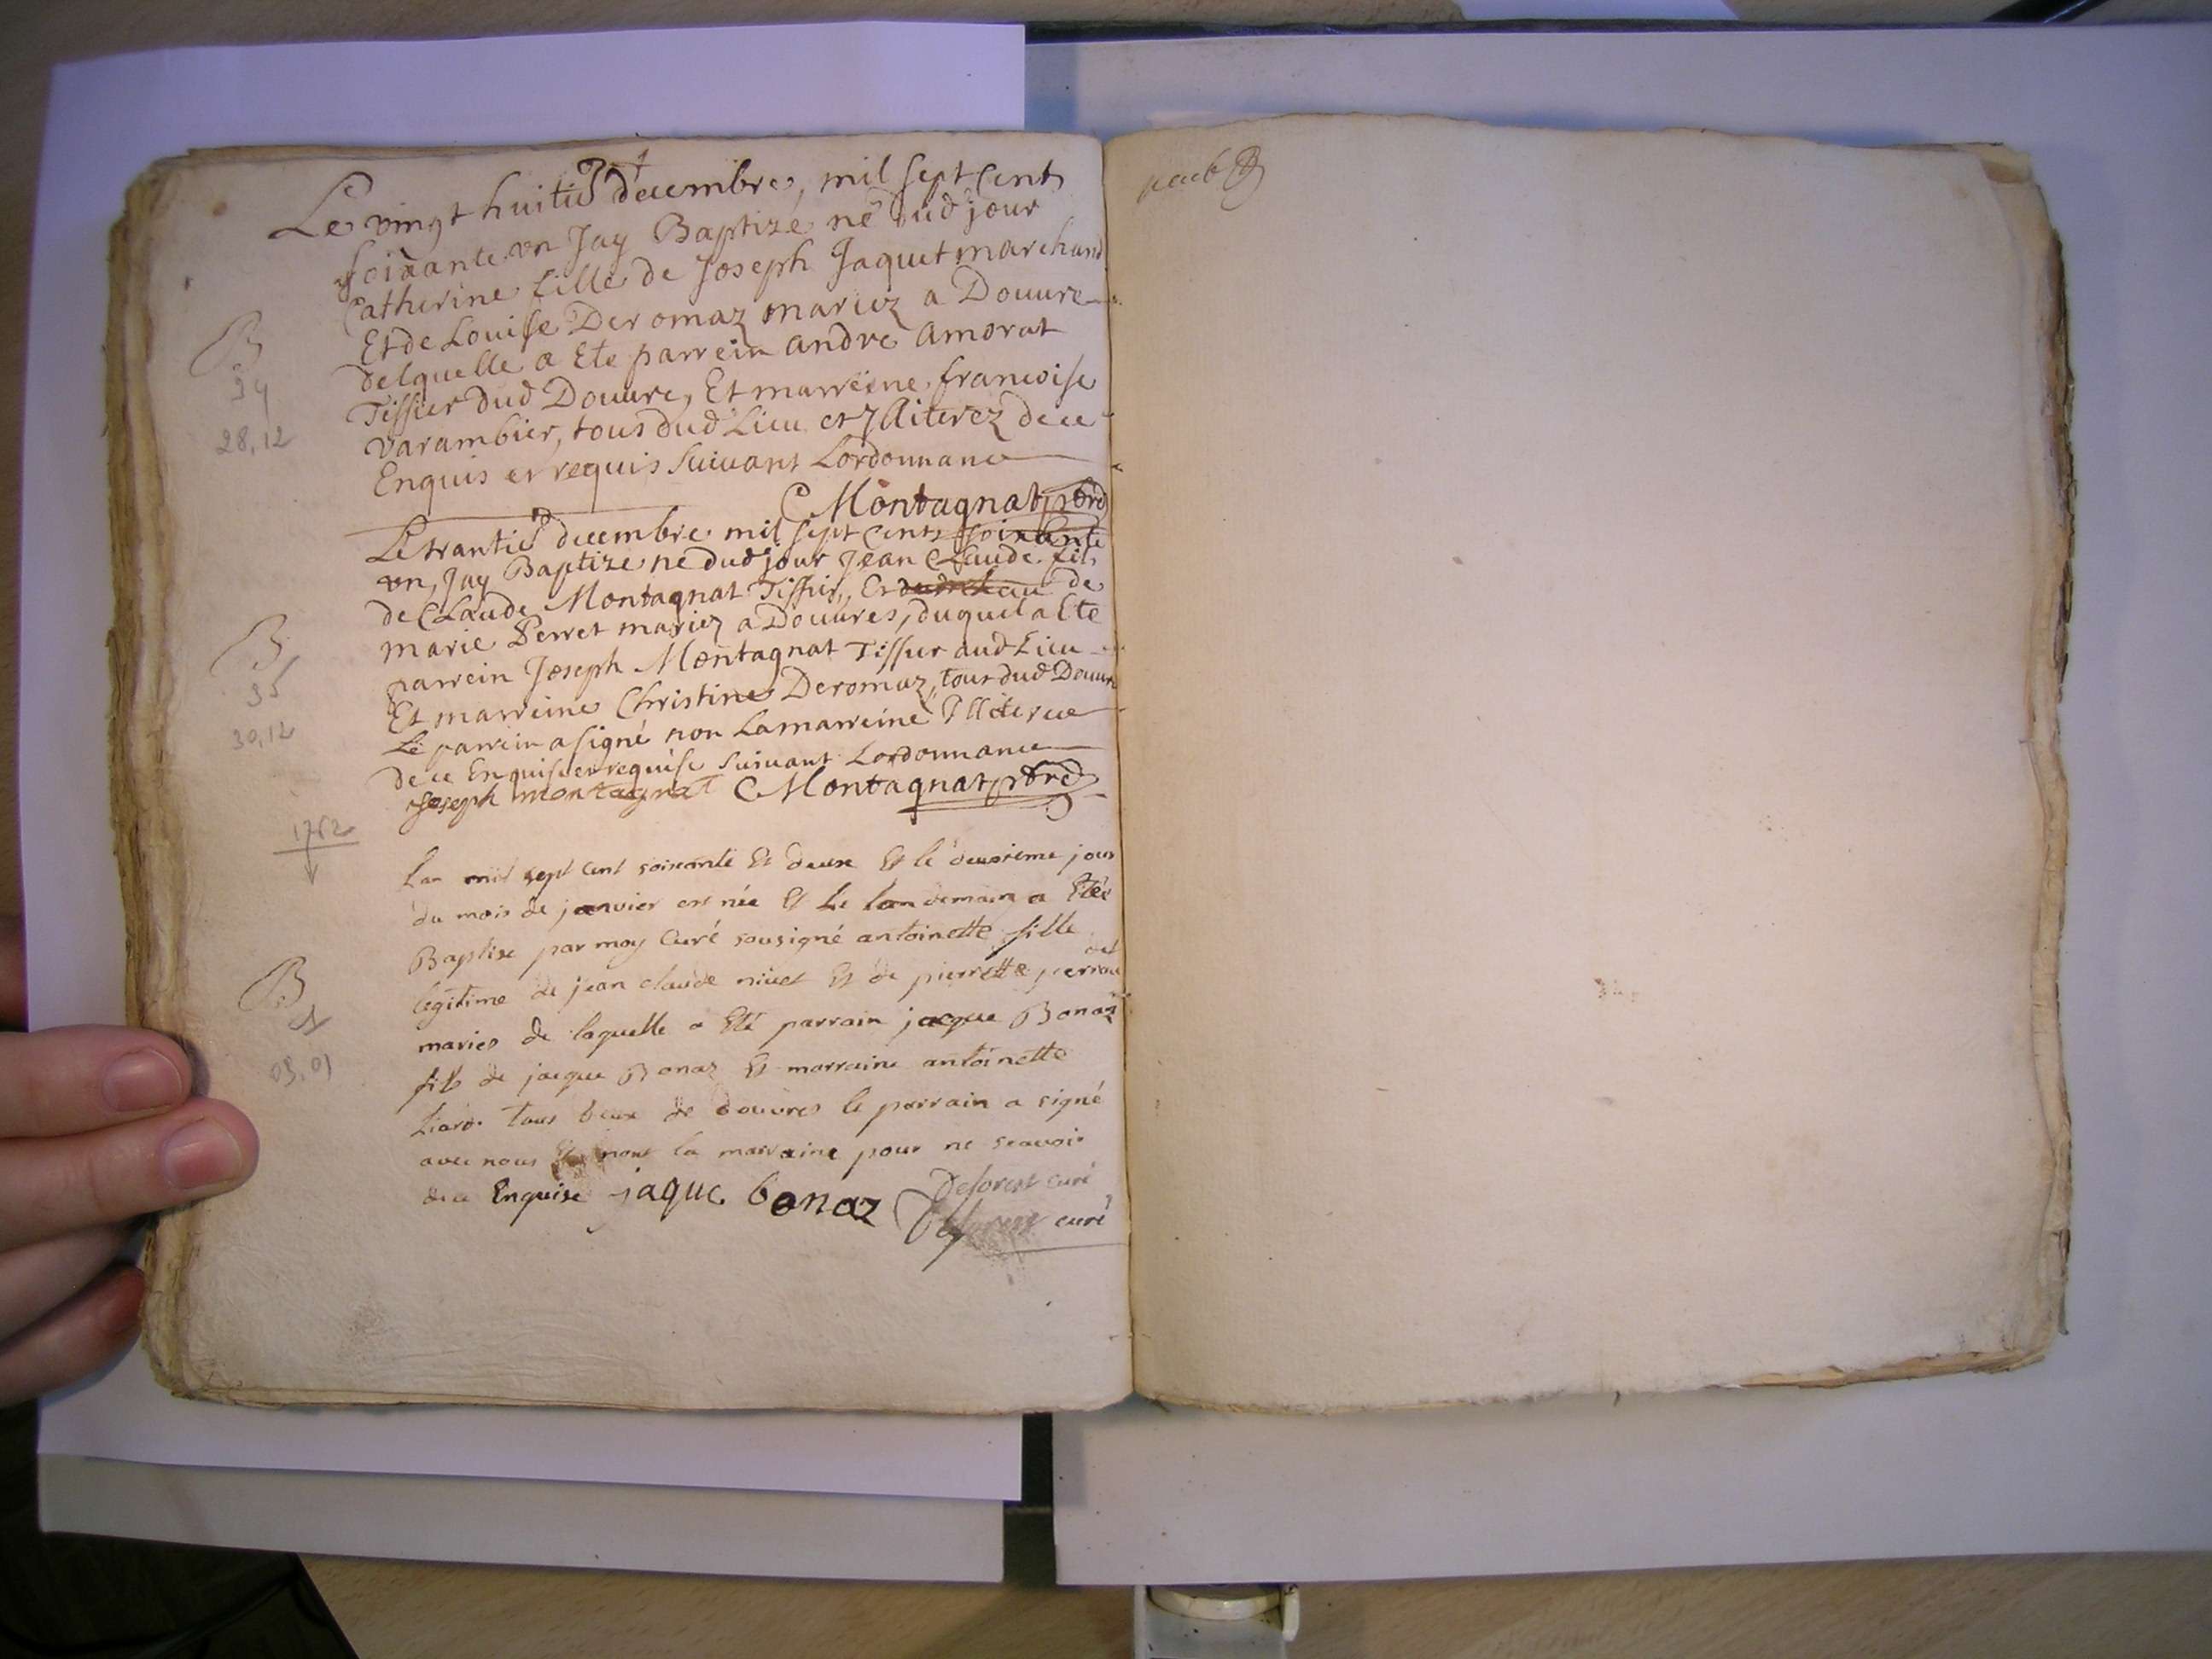 Le vingt huitie decembre, mil sept Cent
soixante un Jay Baptizé né dud jour
Catherine fille de Joseph Jaquet marchand
Et de Louise Deromaz mariez a Douure
delquelle a Ete parrein andre amorat
Tissier dud Douure, Et marreine francoise
Varambier, tous dud Lieu et Illiterez de ce
Enquis et requis suivant Lordonnance
B
34
28,12
C Montagnat, pbre
Le trantie decembre mil sept Cent soixante
un, Jay Baptize né dud jour Jean Claude fils
de Claude Montagnat Tissier, Et de
marie Perret mariez a Douures, duquel a Ete
parrein Joseph Montagnat Tissier dud Lieu
Et marreine Christine Deromaz, tous dud Douure
Le parrein a signé non La marreine Illiteree
de ce Enquise et requise suivant Lordonnance
B
35
30,12
Joseph montagnat C Montagnat pbre
1762
Lan mil sept cent soixante Et deux Et le deuxieme jour
du mois de janvier est née Et Le landemain a Etée
Baptise par moy Curé sousigné antoinette fille
legitime de jean claude nivet Et de pierrette
maries de laquelle a Eté parrain jacque Bonaz
fils de jacque Bonaz Et marraine antoinette
Liard tous deux de douvres le parrain a signé
avec nous Et nont la marraine pour ne scavoir
de ce Enquise jaque bonaz Deforest curé
Deforest curé
B
1
03,01